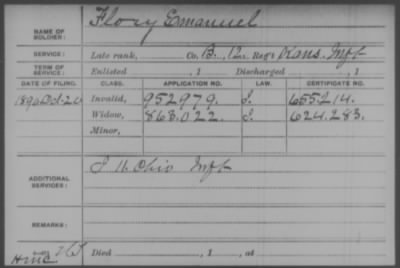 NAME OF SOLDIER: Flory Emanuel
SERVICE: Late rank, Co. B, 12 Reg't Kans. Inft
TERM OF SERVICE: Enlisted , 1 Discharged , 1
DATE OF FILING. CLASS. APPLICATION NO. LAW. CERTIFICATE NO.
1890 Oct. 20 Invalid, 952979. J. 655214.
Widow, 863.022. J. 624.283.
Minor,
ADDITIONAL SERVICES: Ohio Inft
REMARKS:
Died , 1 , at